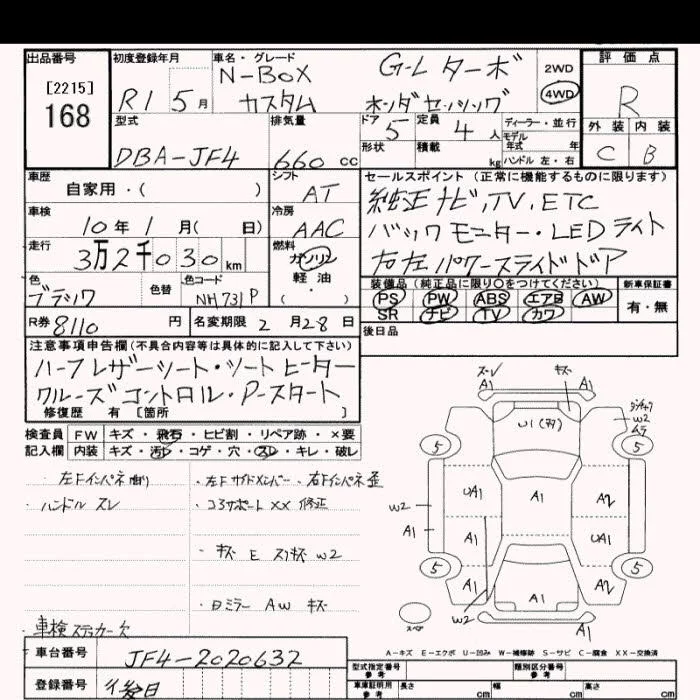 出品番号
[2215]
168
初度登録年月
R1 5月
車名・グレード
N-BOX G-L ターボ
カスタム ホンダセンシング
2WD
4WD
評価点
R
外装 内装
C B
型式
DBA-JF4
排気量
660 cc
ドア
5
定員
4人
形状
積載
kg
ディーラー・並行
モデル
年式 年
ハンドル 左・右
車歴
自家用・( )
シフト
AT
車検
10年1月( 日)
冷房
AAC
走行
3万2千030km
燃料
ガソリン
軽油
( ・ )
色
ブラック
色替
色コード
NH731P
R券 8110 円
名変期限 2月28日
セールスポイント(正常に機能するものに限ります)
純正ナビ,TV,ETC
バックモニター・LEDライト
右左パワースライドドア
装備品(純正品に限り〇をつけてください)
PS PW ABS エアB AW
SR ナビ TV カワ
新車保証書
有・無
後日品
注意事項申告欄(不具合内容等は具体的に記入して下さい)
ハーフレザーシート・シートヒーター
クルーズコントロール・P-スタート
修復歴 有 [箇所 ]
検査員
記入欄
FW キズ・飛石・ヒビ割・リペア跡・×要
内装 キズ・汚レ・コゲ・穴・スレ・キレ・破レ
・左Fインパネ曲り
・ハンドル スレ
・左Fサイドメンバー・右Fインパネ歪
・コアサポート XX 修正
・キズ E スリキズ W2
・日ミラー AW キズ
車検ステッカー欠
車台番号 JF4-2020632
登録番号 後日
ズレ
A1
キズ
A1
W2
ムラ
W1
5
5
UA1
A1
A2
W2
A1
A1
UA1
5
5
A1
A1
A2
W2
A1
スペア
A-キズ E-エクボ U-凹み W-補修跡 S-サビ C-腐食 XX-交換済
型式指定番号
参考
類別区分番号
参考
車庫証明用
参考
長さ cm
幅 cm
高さ cm